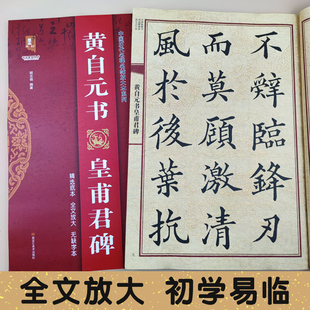 黄自元书
皇甫君碑
精选底本 全文放大 无缺字本
黄自元书皇甫君碑
不辤臨鋒刃
而莫顧激清
風於後葉抗
全文放大 初学易临